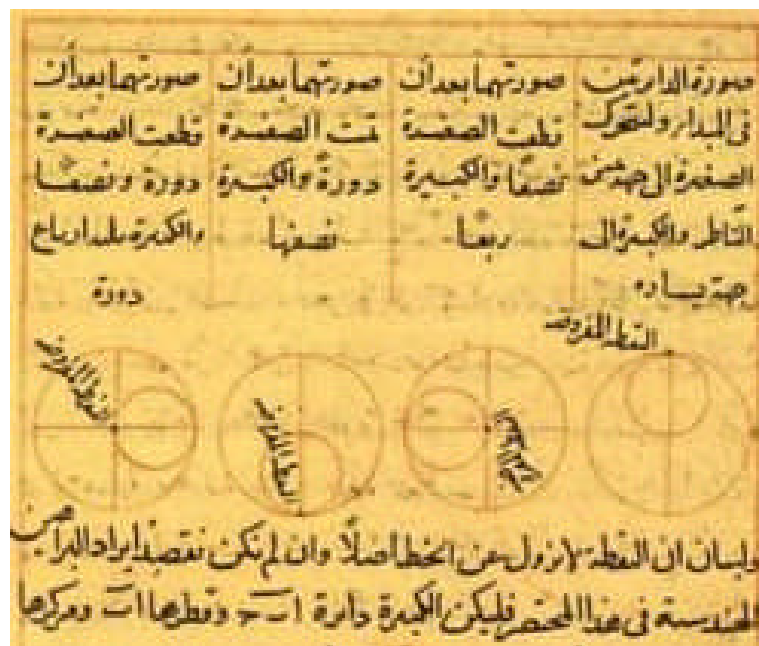 صورة الدائرتين
في المبدا ولتتحرك
الصغيرة الى جهة يمين
الناظر والكبيرة الى
جهة يساره
صورتهما بعد ان
قطعت الصغيرة
نصفا والكبيرة
ربعا
صورتهما بعد ان
تمت الصغيرة
دورة والكبيرة
نصفها
صورتهما بعد ان
قطعت الصغيرة
دورة ونصفا
والكبيرة ثلثة ارباع
دورة
النقطة المفروضة
النقطة المفروضة
النقطة المفروضة
النقطة المفروضة
ولبيان ان النقطة لا تزول عن الخط اصلا وان لم نكن نقصد ايراد البراهين
الهندسية في هذا المختصر فليكن الكبيرة دائرة ا ب ج وقطرها ا ب ومركزها